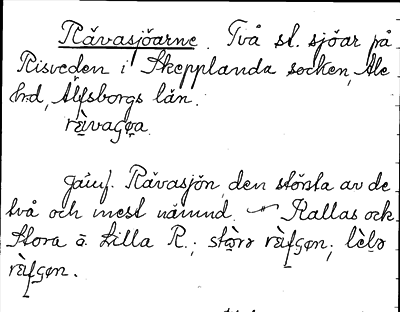 Rävasjöarne. Två st. sjöar på
Risveden i Skepplanda socken, Ale
hrd, Älfsborgs län.
rävagøa
Jämf. Rävasjön, den största av de
två och mest nämnd. — Kallas ock
Stora o. Lilla R.; stòrə rèifgøn; lèlə
rèifgøn.